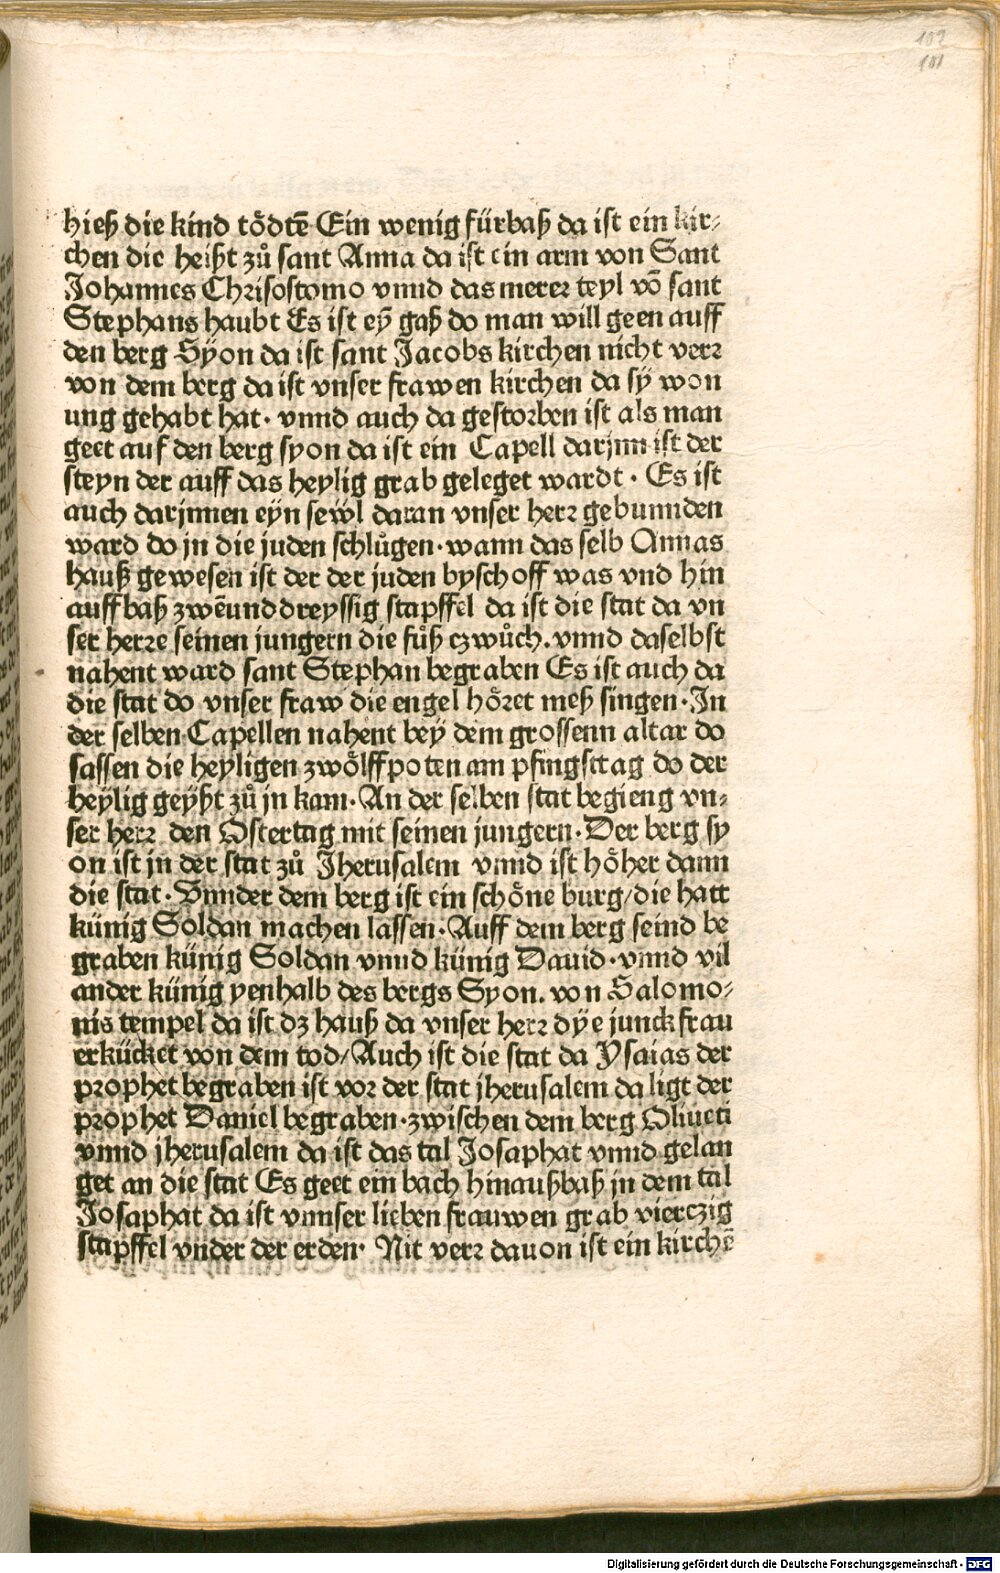 102
101
hieß die kind tödtē Ein wenig fürbaß da ist ein kir⸗
chen die heißt zů sant Anna da ist ein arm von Sant
Johannes Chrisostomo vnnd das merer teyl vō sant
Stephans haubt Es ist eȳ gaß do man will geen auff
den berg Syon da ist sant Jacobs kirchen nicht verr
von dem berg da ist vnser frawen kirchen da sÿ won
ung gehabt hat. vnnd auch da gestorben ist als man
geet auf den berg syon da ist ein Capell darjnn ist der
steyn der auff das heylig grab geleget wardt. Es ist
auch darjnnen eyn sewl daran vnser herr gebunnden
ward do jn die juden schlůgen. wann das selb Annas
hauß gewesen ist der der juden byschoff was vnd hin
auffbaß zwēunddreyssig stapffel da ist die stat da vn
ser herre seinen jungern die fůß czwůch. vnnd daselbst
nahent ward sant Stephan begraben Es ist auch da
die stat do vnser fraw die engel höret meß singen. In
der selben Capellen nahent bey dem grossenn altar do
sassen die heyligen zwölffpoten am pfingsttag do der
heylig geyst zů jn kam. An der selben stat begieng vn⸗
ser herr den Ostertag mit seinen jungern. Der berg sy
on ist jn der stat zů Jherusalem vnnd ist höher dann
die stat. Vnnder dem berg ist ein schöne burg/die hatt
künig Soldan machen lassen. Auff dem berg seind be
graben künig Soldan vnnd künig Dauid. vnnd vil
ander künig yenhalb des bergs Syon. von Salomo⸗
nis tempel da ist dz hauß da vnser herr dye junckfrau
erkücket von dem tod/Auch ist die stat da Ysaias der
prophet begraben ist vor der stat jherusalem da ligt der
prophet Daniel begraben. zwischen dem berg Oliueti
vnnd jherusalem da ist das tal Josaphat vnnd gelan
get an die stat Es geet ein bach hinaußbaß jn dem tal
Josaphat da ist vnnser lieben frauwen grab vierczig
stapffel vnder der erden. Nit verr dauon ist ein kirchē
Digitalisierung gefördert durch die Deutsche Forschungsgemeinschaft - DFG